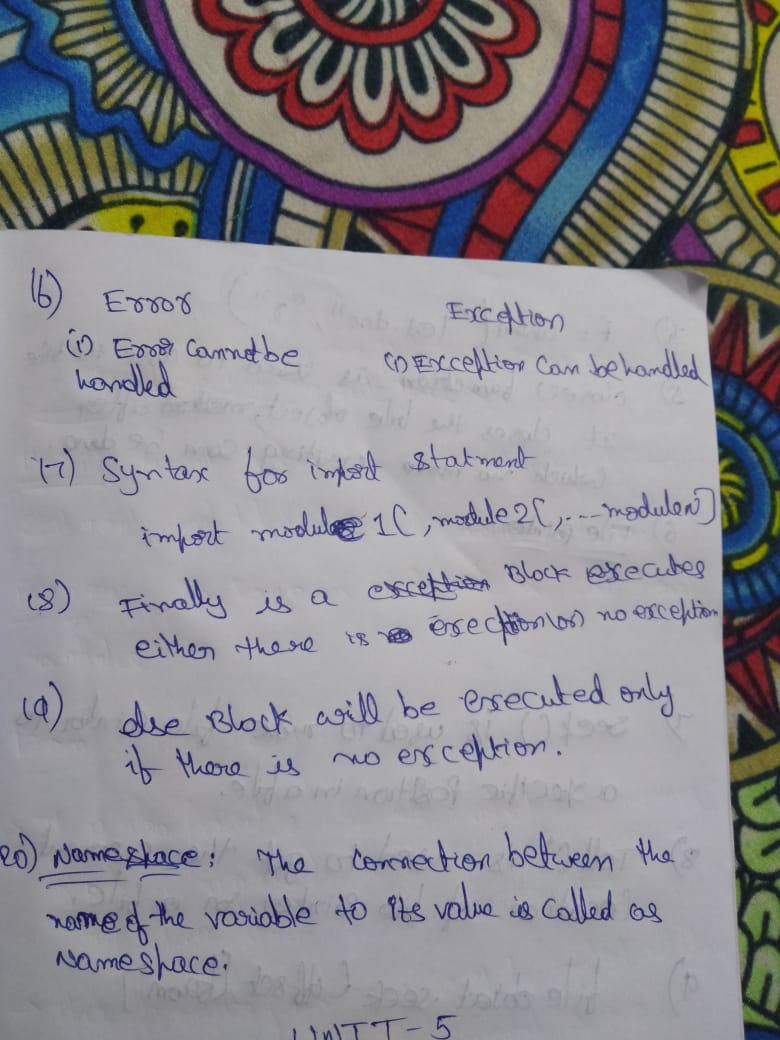 16) Error Exception
(i) Error Cannot be (i) Exception Can be handled
handled
17) Syntax for import statment
import module 1[, module 2[, --- modulen]
18) Finally is a Block executes
either there is exection (or) no exception
19) else Block will be executed only
if there is no exception.
20) Namespace: The connection between the
name of the variable to its value is called as
Namespace.
UNIT-5